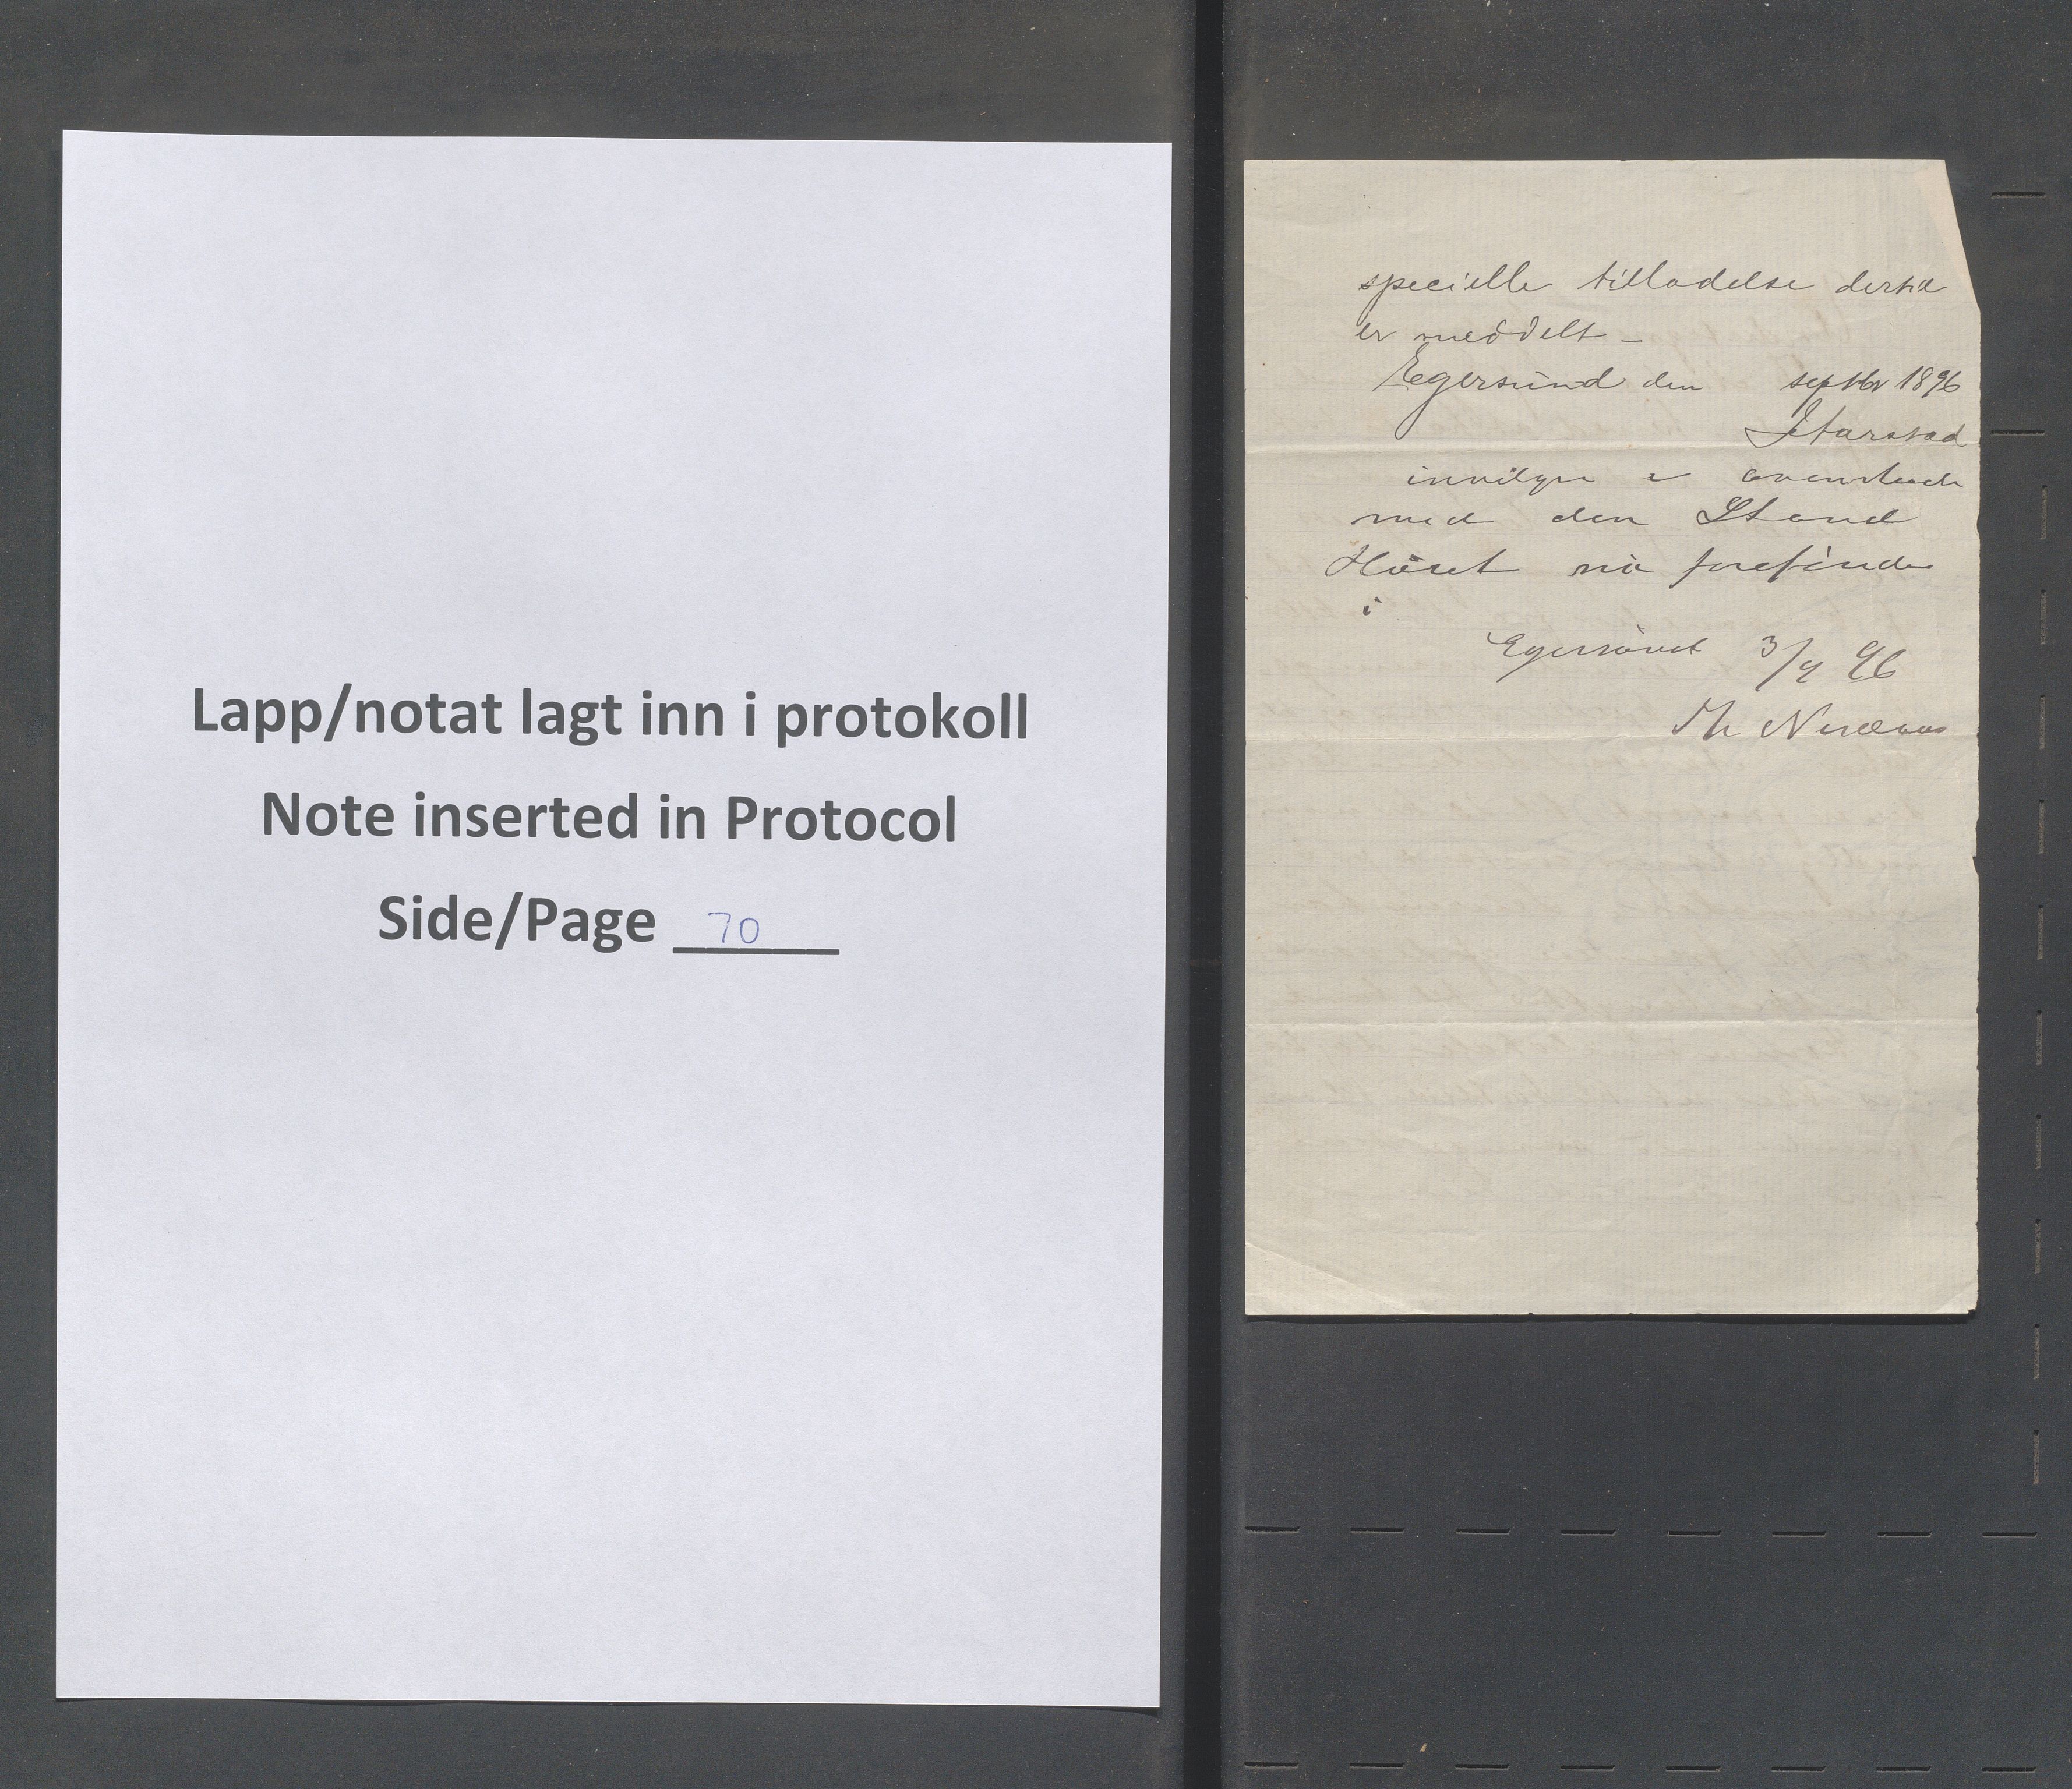 Lapp/notat lagt inn i protokoll
Note inserted in Protocol
Side/Page 70
specielle tilladelse dertil
er meddelt –
Egersund den septbr 1896
med den Stand
Huset nu forefindes
i
Egersund 3/9 96
Th